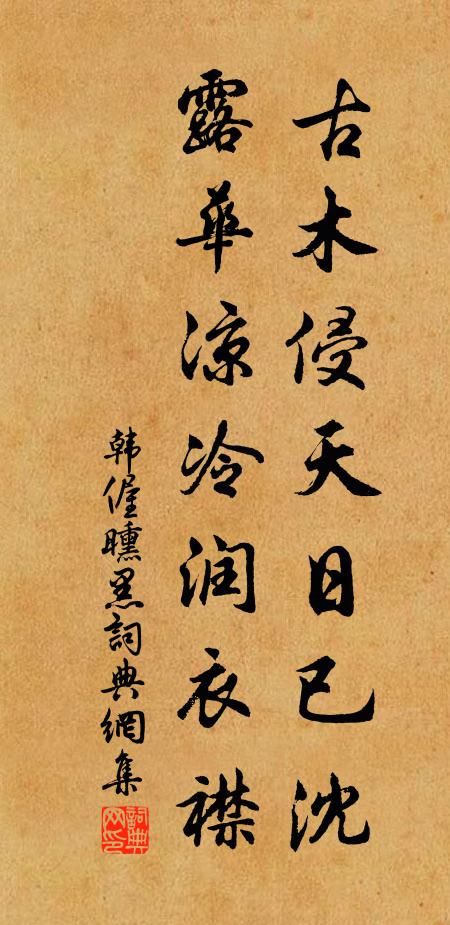 古木侵天日已沈
露華涼冷润衣襟
韩偓曛黑詞典網集
詞典网印